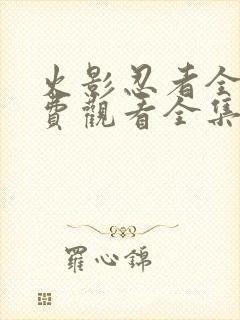 火影忍者全
費觀看全集
羅心錦